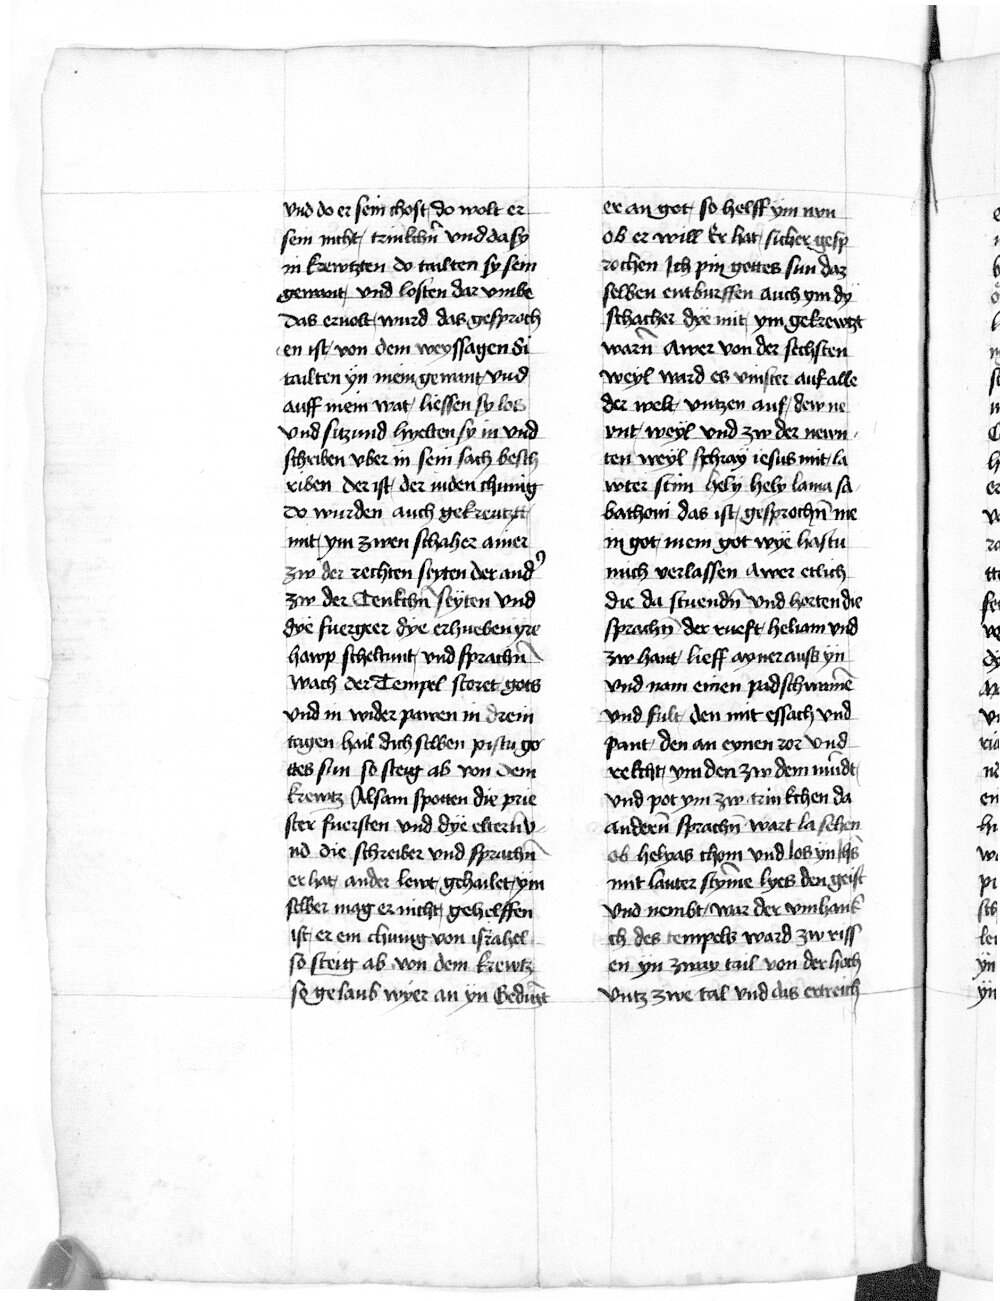 vnd do er sein chost do wolt er
sein nicht trinkchn̄ vnd da sy
in krewtzten do tailten sy sein
gewant vnd losten dar vmbe
das eruolt wurd das gesproch
en ist von dem weyssagen Si
tailten yn mein gewant vnd
auff mein wat liessen sy los
vnd siczund hyelten sy in vnd
schriben vber in sein sach besch
riben der ist der iuden chunig
do wurden auch gekreutzt
mit ym zwen schaher ainer
zw der rechten seyten der and
zw der Tenkchn̄ seyten vnd
dye fuergeer dye erhueben yre
hawp scheltunt vnd sprachn̄
wach der Tempel storet gots
vnd in wider pawen in drein
tagen hail dich selben pistu go
ttes sun so steig ab von dem
krewtz Alsam spotten die prie
ster fuersten vnd dye eltern̄ v
nd die schreiber vnd sprachn̄
er hat ander lewt gehailet ym
selber mag er nicht gehelffen
ist er ein chunig von israhel
so steig ab von dem krewtz
so gelaub wyer an yn Gedingt
er an got so helff ym nvn
ob er will Er hat sicher gesp
rochen Ich pin gottes sun daz
selben entburffen auch ym dy
schacher dye mit ym gekrewtzt
warn̄ Awer von der sechsten
weyl ward es vinster auf alle
der welt vntzen auf dew ne
vnt weyl vnd zw der newn
ten weyl schray iesus mit la
wter stim hely hely lama sa
bathoni das ist gesprochn̄ me
in got mein got wye hastu
mich verlassen Awer etlich
die da stuendn̄ vnd horten die
sprachn̄ der rueft heliam vnd
zw hant lieff ayner auss yn
vnd nam einen padschwam̄e
vnd fult den mit essach vnd
pant den an eynen ror vnd
rekcht ym den zw dem mund
vnd pot ym zw trinkchen da
andern̄ sprachn̄ wart la sehen
ob helyas chom vnd los yn ihs̄
mit lauter stym̄e lyes den geist
vnd nembt war der vmhank
ch des tempels ward zw riss
en yn zway tail von der hoch
vntz zwe tal vnd das ertreich